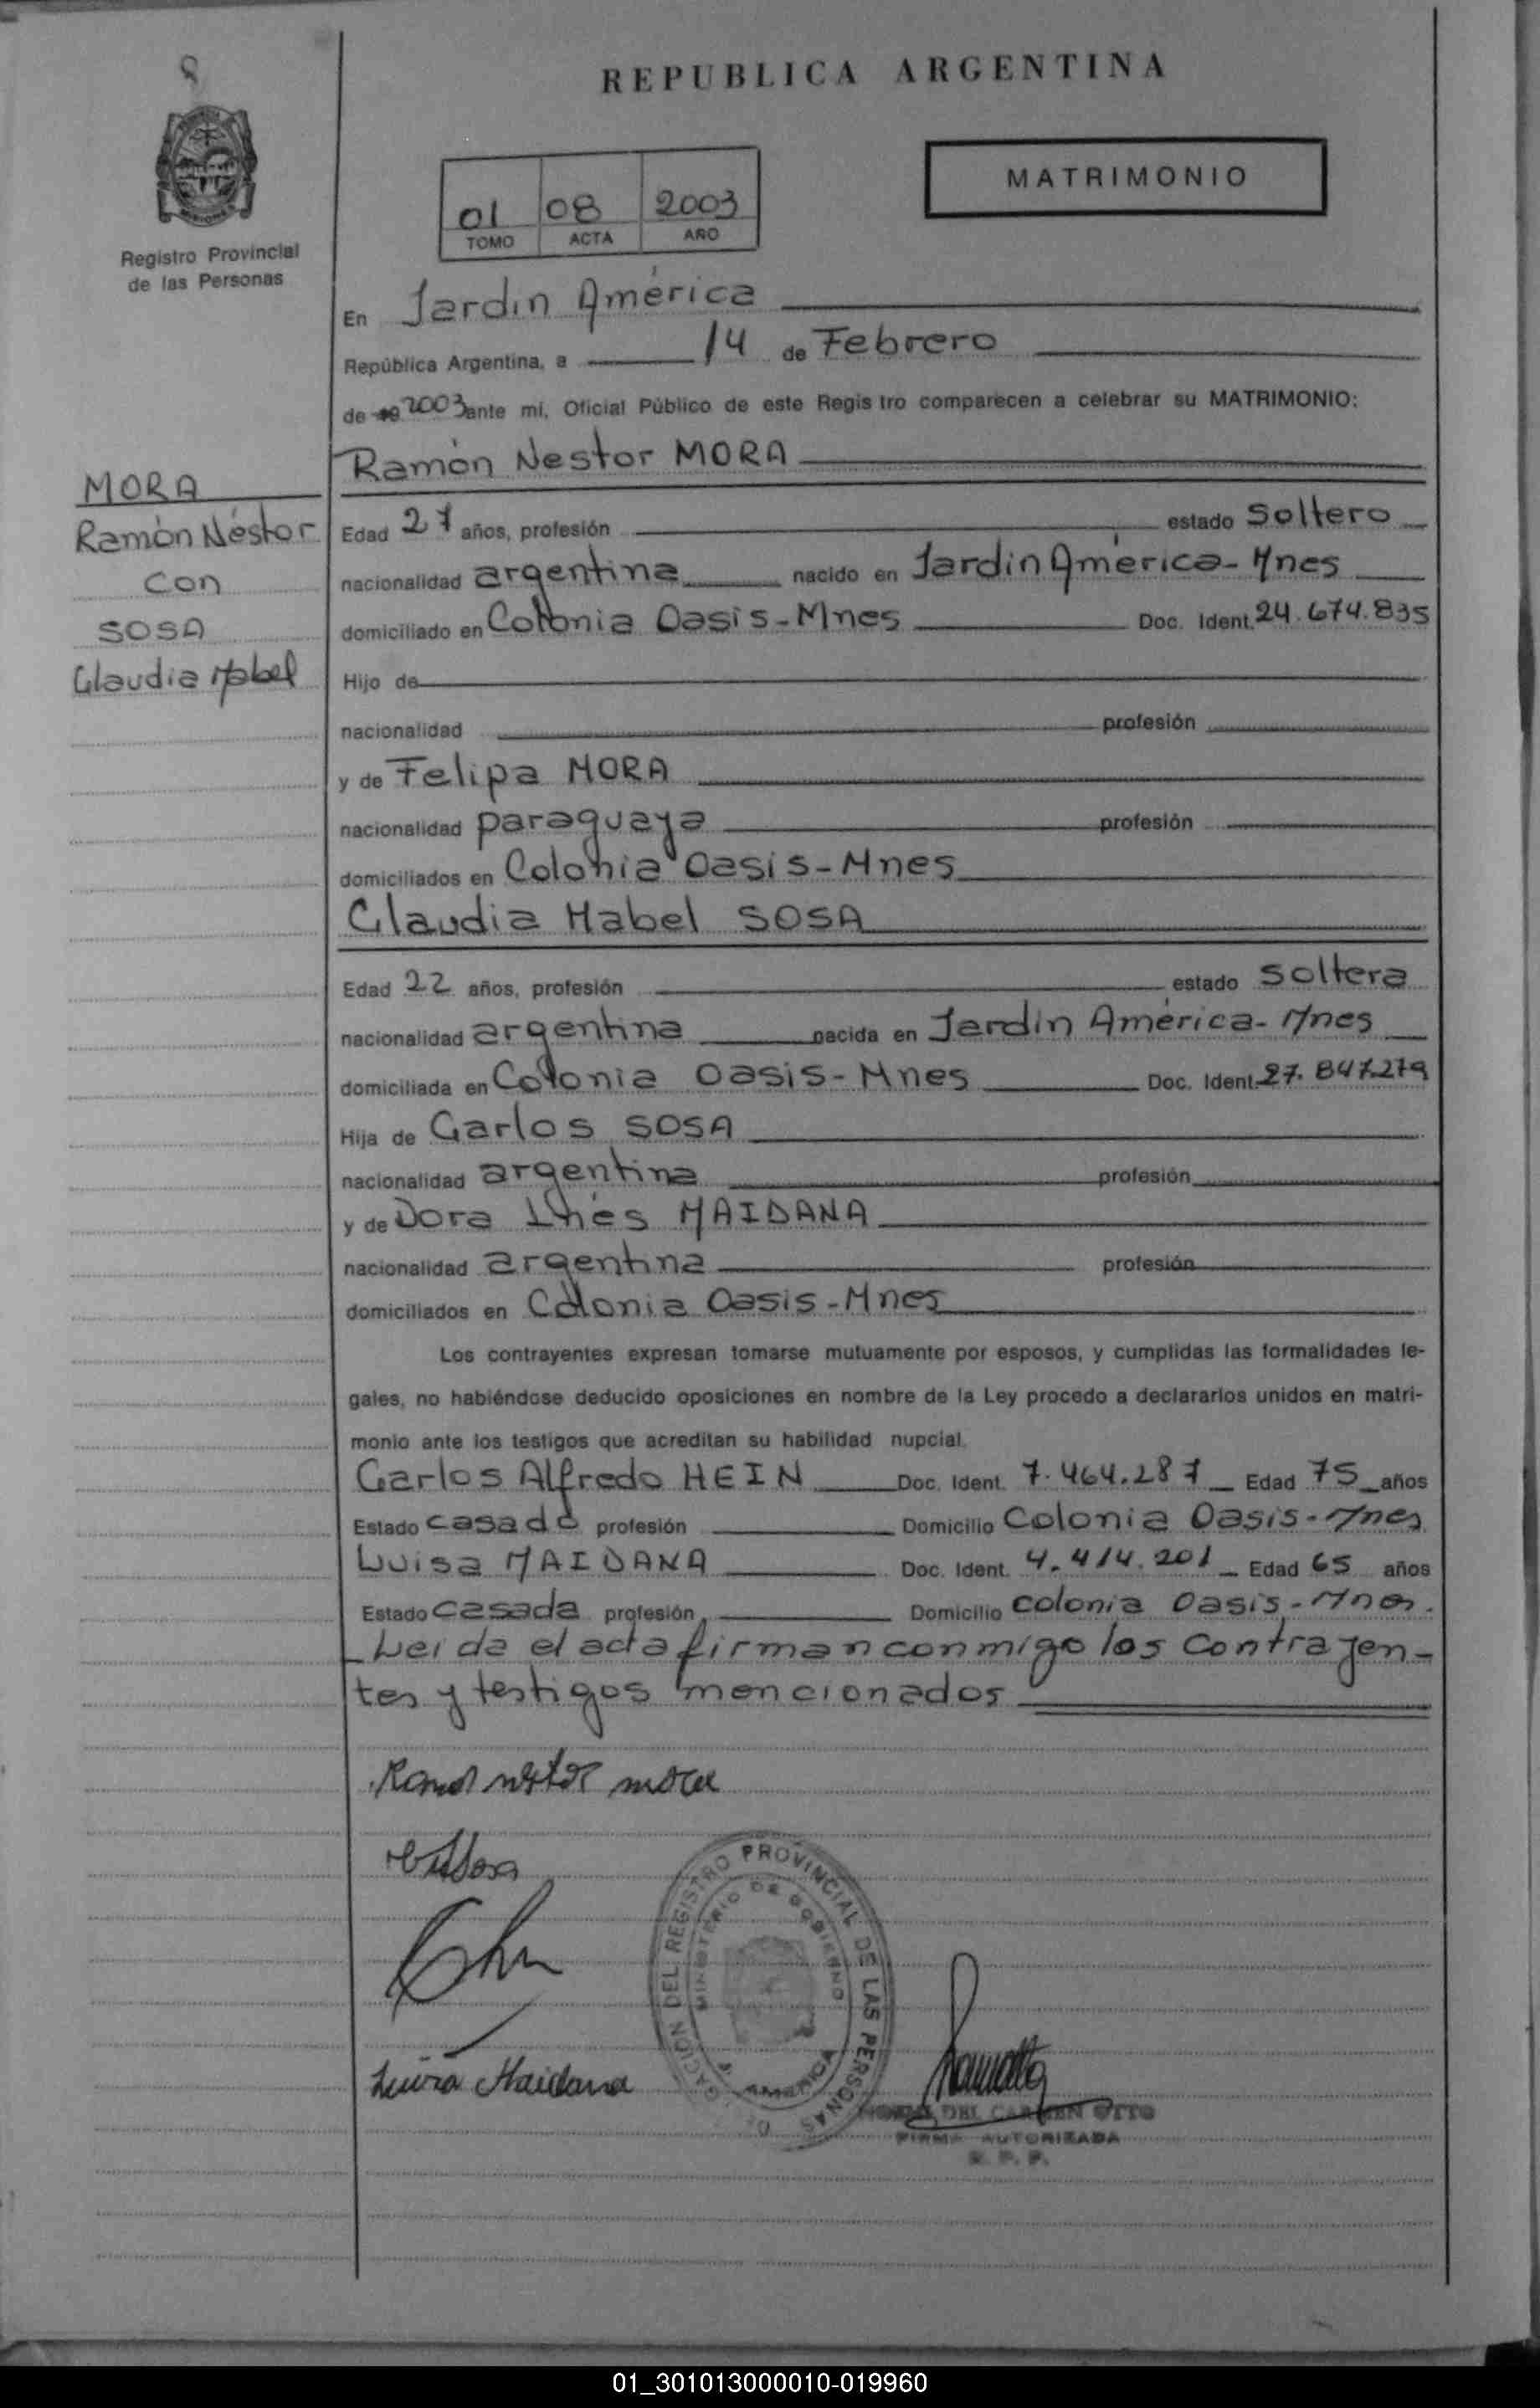 REPUBLICA ARGENTINA
MATRIMONIO
01 08 2003
TOMO ACTA AÑO
Registro Provincial
de las Personas
En Jardin América
República Argentina, a 14 de Febrero
de 2003 ante mí, Oficial Público de este Regis tro comparecen a celebrar su MATRIMONIO:
Ramón Nestor MORA
MORA
Ramón Néstor
con
SOSA
Claudia Mabel
Edad 27 años, profesión estado Soltero
nacionalidad argentina nacido en Jardin América - Mnes
domiciliado en Colonia Oasis - Mnes Doc. Ident. 24.674.835
Hijo de
nacionalidad profesión
y de Felipa MORA
nacionalidad paraguaya profesión
domiciliados en Colonia Oasis - Mnes
Claudia Mabel SOSA
Edad 22 años, profesión estado Soltera
nacionalidad argentina nacida en Jardin América - Mnes
domiciliada en Colonia Oasis - Mnes Doc. Ident. 27.847.279
Hija de Carlos SOSA
nacionalidad argentina profesión
y de Dora Inés MAIDANA
nacionalidad argentina profesión
domiciliados en Colonia Oasis - Mnes
Los contrayentes expresan tomarse mutuamente por esposos, y cumplidas las formalidades le-
gales, no habiéndose deducido oposiciones en nombre de la Ley procedo a declararlos unidos en matri-
monio ante los testigos que acreditan su habilidad nupcial.
Carlos Alfredo HEIN Doc. Ident. 7.464.287 Edad 75 años
Estado casado profesión Domicilio Colonia Oasis - Mnes
Luisa MAIDANA Doc. Ident. 4.414.201 Edad 65 años
Estado casada profesión Domicilio colonia Oasis - Mnes.
Leida el acta firman conmigo los contrayen-
tes y testigos mencionados
Ramon nestor mora
Luisa Maidana
DELEGACION DEL REGISTRO PROVINCIAL DE LAS PERSONAS
MINISTERIO DE GOBIERNO
AMERICA
DEL CARMEN OTTO
FIRMA AUTORIZADA
R. P. P.
01_301013000010-019960